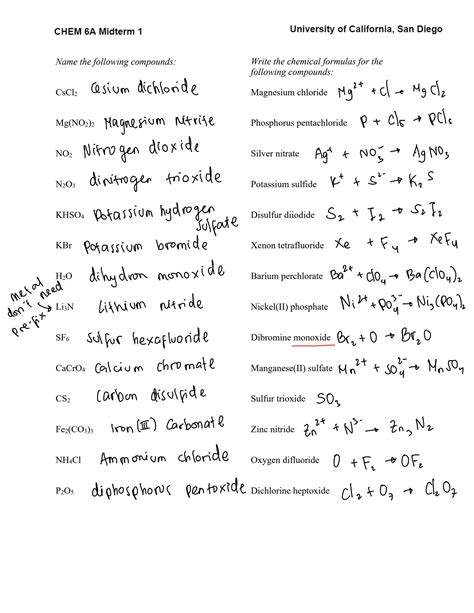 CHEM 6A Midterm 1
University of California, San Diego
Name the following compounds:
CsCl₂ Cesium dichloride
Mg(NO₂)₂ Magnesium nitrite
NO₂ Nitrogen dioxide
N₂O₃ dinitrogen trioxide
KHSO₄ Potassium hydrogen
sulfate
KBr Potassium bromide
H₂O dihydron monoxide
metal
don't need
pre-fix
Li₃N Lithium nitride
SF₆ sulfur hexafluoride
CaCrO₄ Calcium chromate
CS₂ Carbon disulfide
Fe₂(CO₃)₃ Iron (III) Carbonate
NH₄Cl Ammonium chloride
P₂O₅ diphosphorus pentoxide
Write the chemical formulas for the
following compounds:
Magnesium chloride Mg²⁺ + Cl → MgCl₂
Phosphorus pentachloride P + Cl₅ → PCl₅
Silver nitrate Ag⁺ + NO₃⁻ → AgNO₃
Potassium sulfide K⁺ + S²⁻ → K₂S
Disulfur diiodide S₂ + I₂ → S₂I₂
Xenon tetrafluoride Xe + F₄ → XeF₄
Barium perchlorate Ba²⁺ + ClO₄ → Ba(ClO₄)₂
Nickel(II) phosphate Ni²⁺ + PO₄³⁻ → Ni₃(PO₄)₂
Dibromine monoxide Br₂ + O → Br₂O
Manganese(II) sulfate Mn²⁺ + SO₄²⁻ → MnSO₄
Sulfur trioxide SO₃
Zinc nitride Zn²⁺ + N³⁻ → Zn₃N₂
Oxygen difluoride O + F₂ → OF₂
Dichlorine heptoxide Cl₂ + O₇ → Cl₂O₇